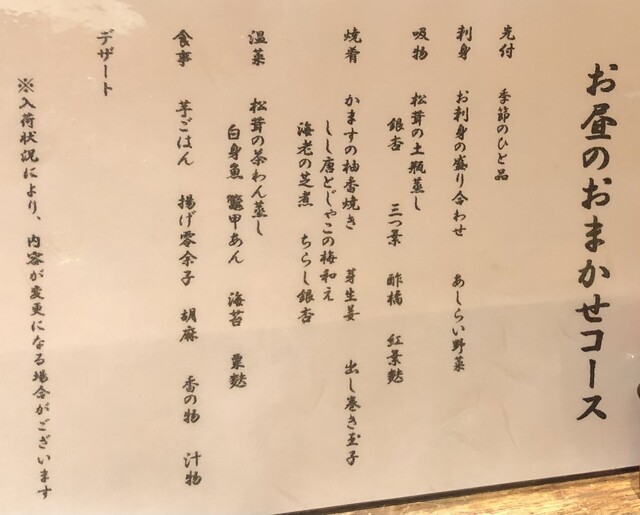 お昼のおまかせコース
先付 季節のひと品
刺身 お刺身の盛り合わせ あしらい野菜
吸物 松茸の土瓶蒸し
銀杏 三つ葉 酢橘 紅葉麩
焼肴 かますの柚香焼き 芽生姜 出し巻き玉子
しし唐とじゃこの梅和え
海老の芝煮 ちらし銀杏
温菜 松茸の茶わん蒸し
白身魚 鼈甲あん 海苔 粟麩
食事 芋ごはん 揚げ零余子 胡麻 香の物 汁物
デザート
※入荷状況により、内容が変更になる場合がございます